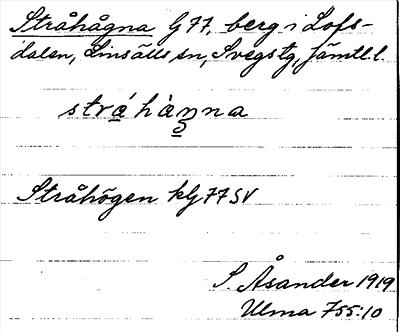 Stråhågna G77, berg i Lofs-
dalen, Linsälls sn, Svegs tg, Jämtl.l.
stráhàŋna
Stråhögen kG77SV
S. Åsander 1919
Ulma 755:10